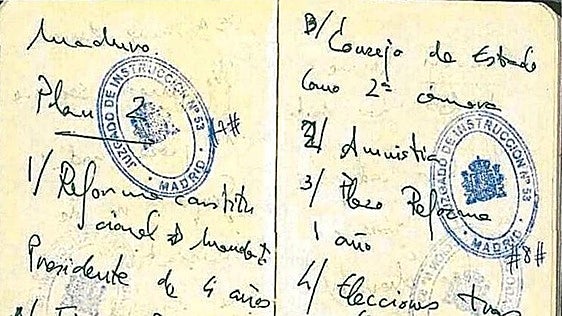 Maduro.
Plan 2
1/ Reforma constitu
cional Mandato
Presidente de 4 años
JUZGADO DE INSTRUCCION Nº 53
· MADRID ·
#7#
B/ Consejo de Estado
Como 2ª cámara
2/ Amnistia
3/ Plazo Reforma
1 año
4/ Elecciones tras
JUZGADO DE INSTRUCCION Nº 53
· MADRID ·
#8#